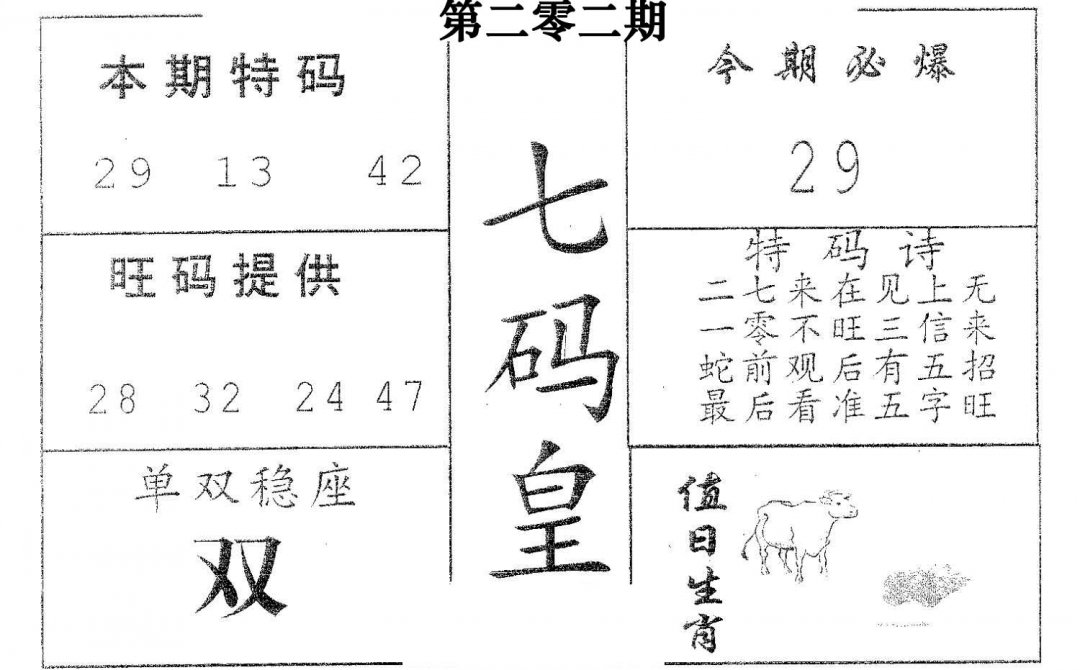 第二零二期
本期特码
29 13 42
旺码提供
28 32 24 47
单双稳座
双
七码皇
今期必爆
29
特码诗
二七来在见上无
一零不旺三信来
蛇前观后有五招
最后看准五字旺
值日生肖